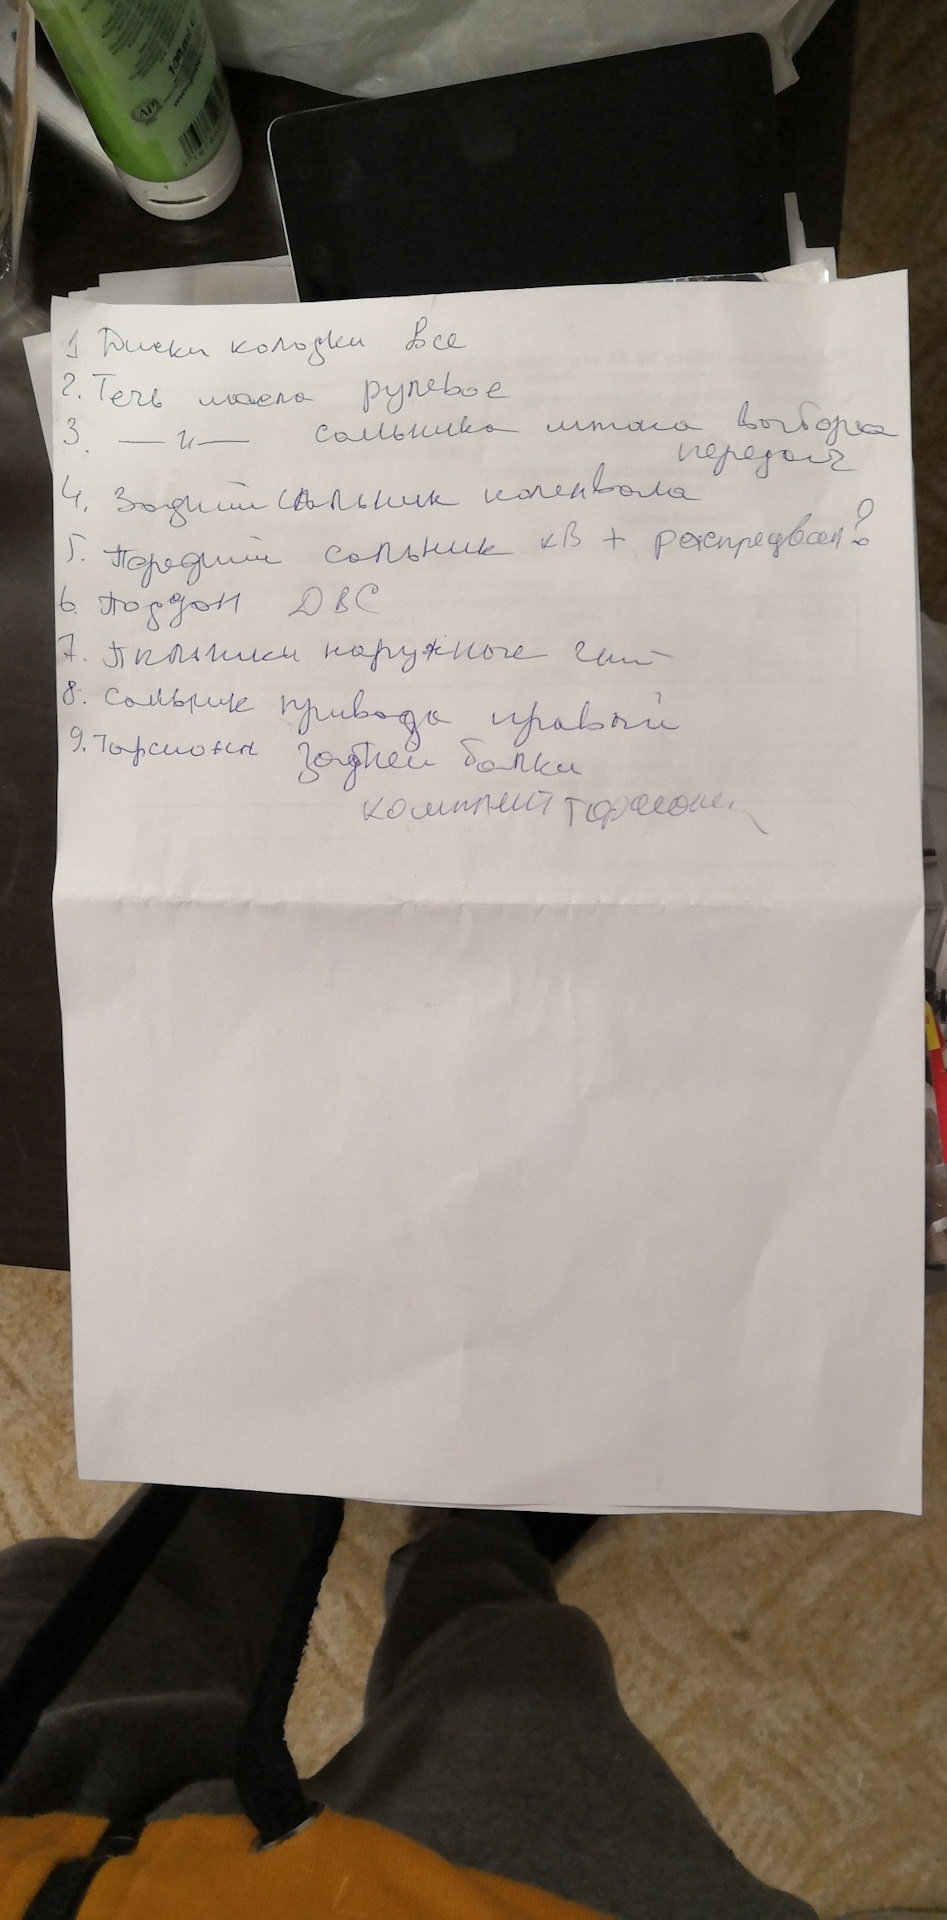 100 ml
1 Диски колодки все
2. Течь масла рулевое
3. —〃— сальника штока выбора
передач
4. Задний сальник коленвала
5. Передний сальник кВ + распредвал?
6. Поддон ДВС
7. Пыльники наружные
8. сальник привода правый
9. Торсионы задней балки
комплект